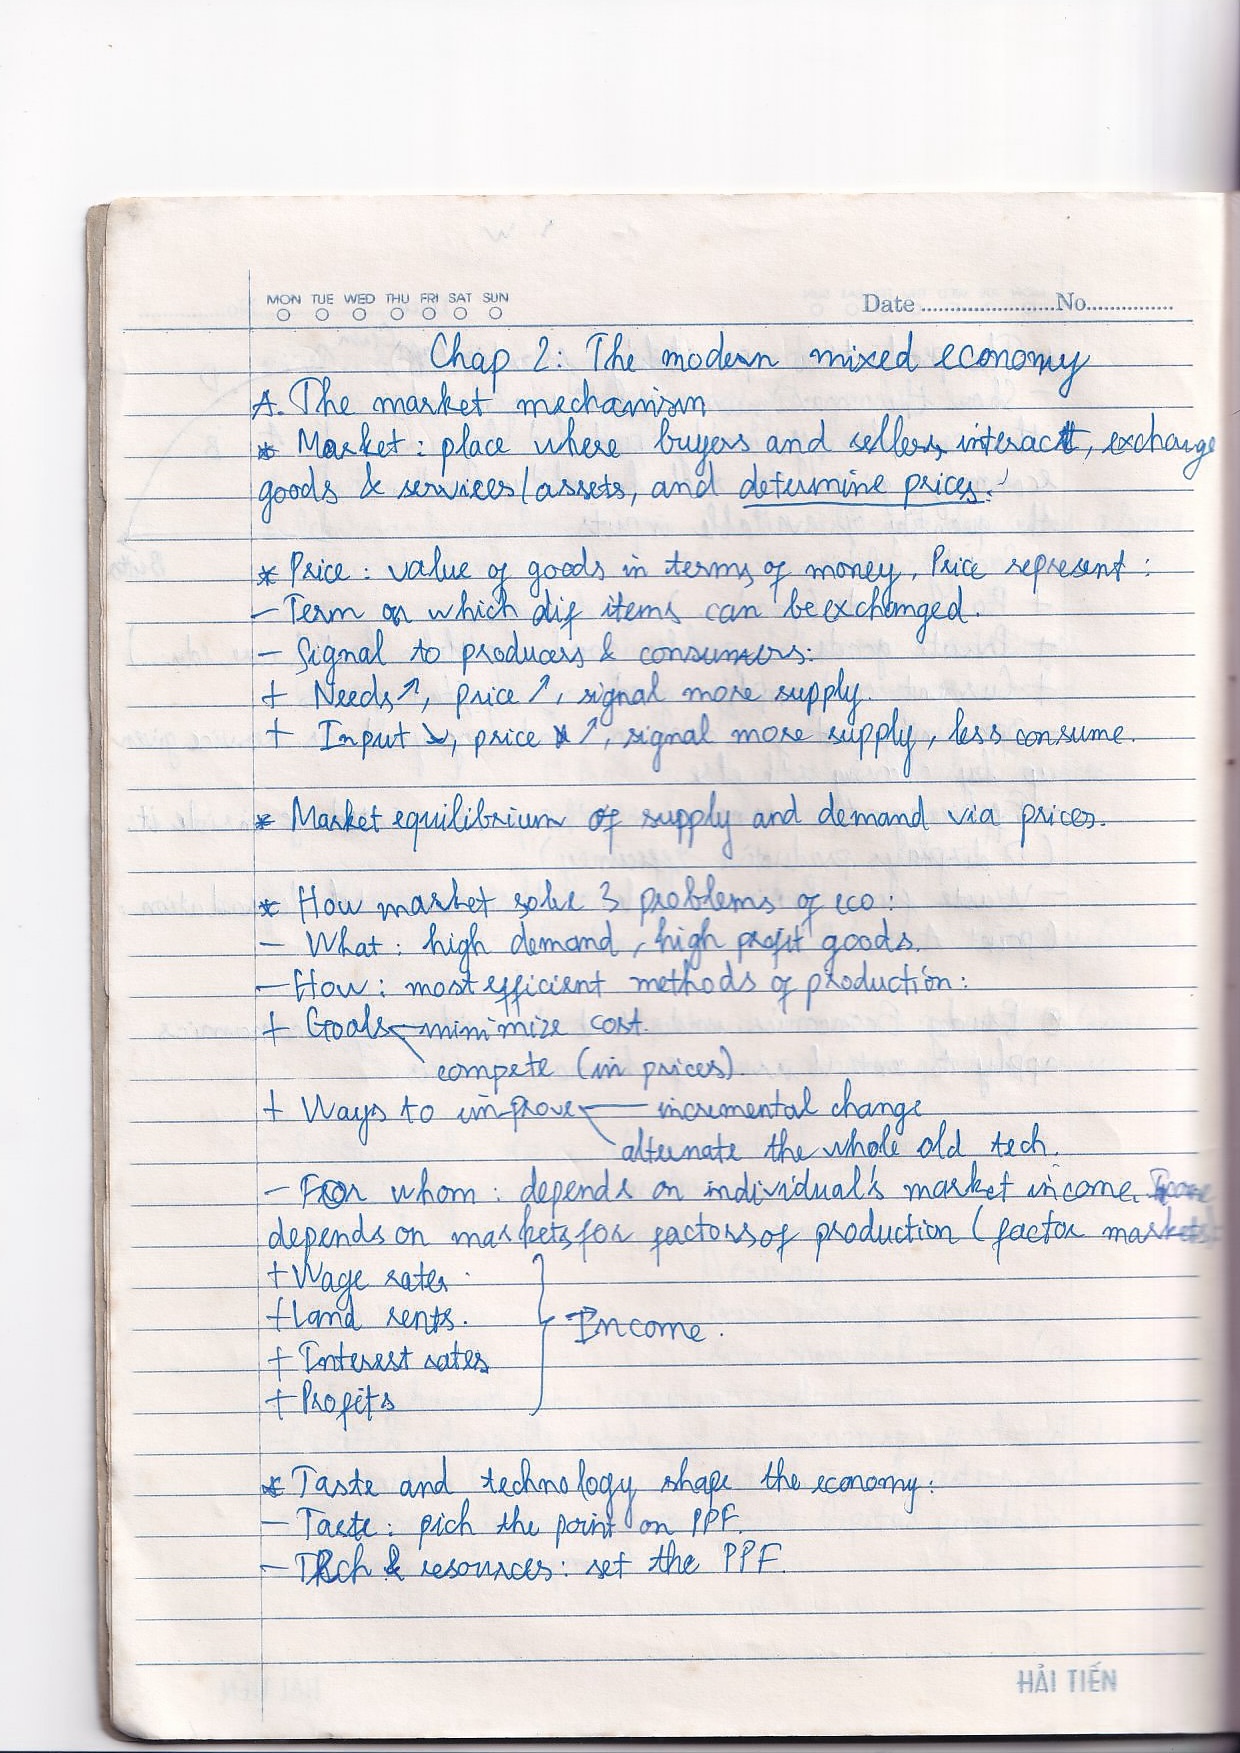 MON TUE WED THU FRI SAT SUN
Date ........................No................
Chap 2: The modern mixed economy
A. The market mechanism
* Market: place where buyers and sellers interact, exchange
goods & services/assets, and determine prices.
* Price: value of goods in terms of money. Price represent:
- Term on which dif items can be exchanged.
- Signal to producers & consumers:
+ Needs ↗, price ↗, signal more supply.
+ Input ↘, price ↗, signal more supply, less consume.
* Market equilibrium of supply and demand via prices.
* How market solve 3 problems of eco:
- What: high demand, high profit goods.
- How: most efficient methods of production:
+ Goals minimize cost.
compete (in prices).
+ Ways to improve incremental change
alternate the whole old tech.
- For whom: depends on individual's market income. Income
depends on markets for factors of production (factor markets)
+ Wage rates.
+ Land rents.
→ Income.
+ Interest rates
+ Profits
* Taste and technology shape the economy:
- Taste: pich the point on PPF.
- Tech & resources: set the PPF.
HẢI TIẾN